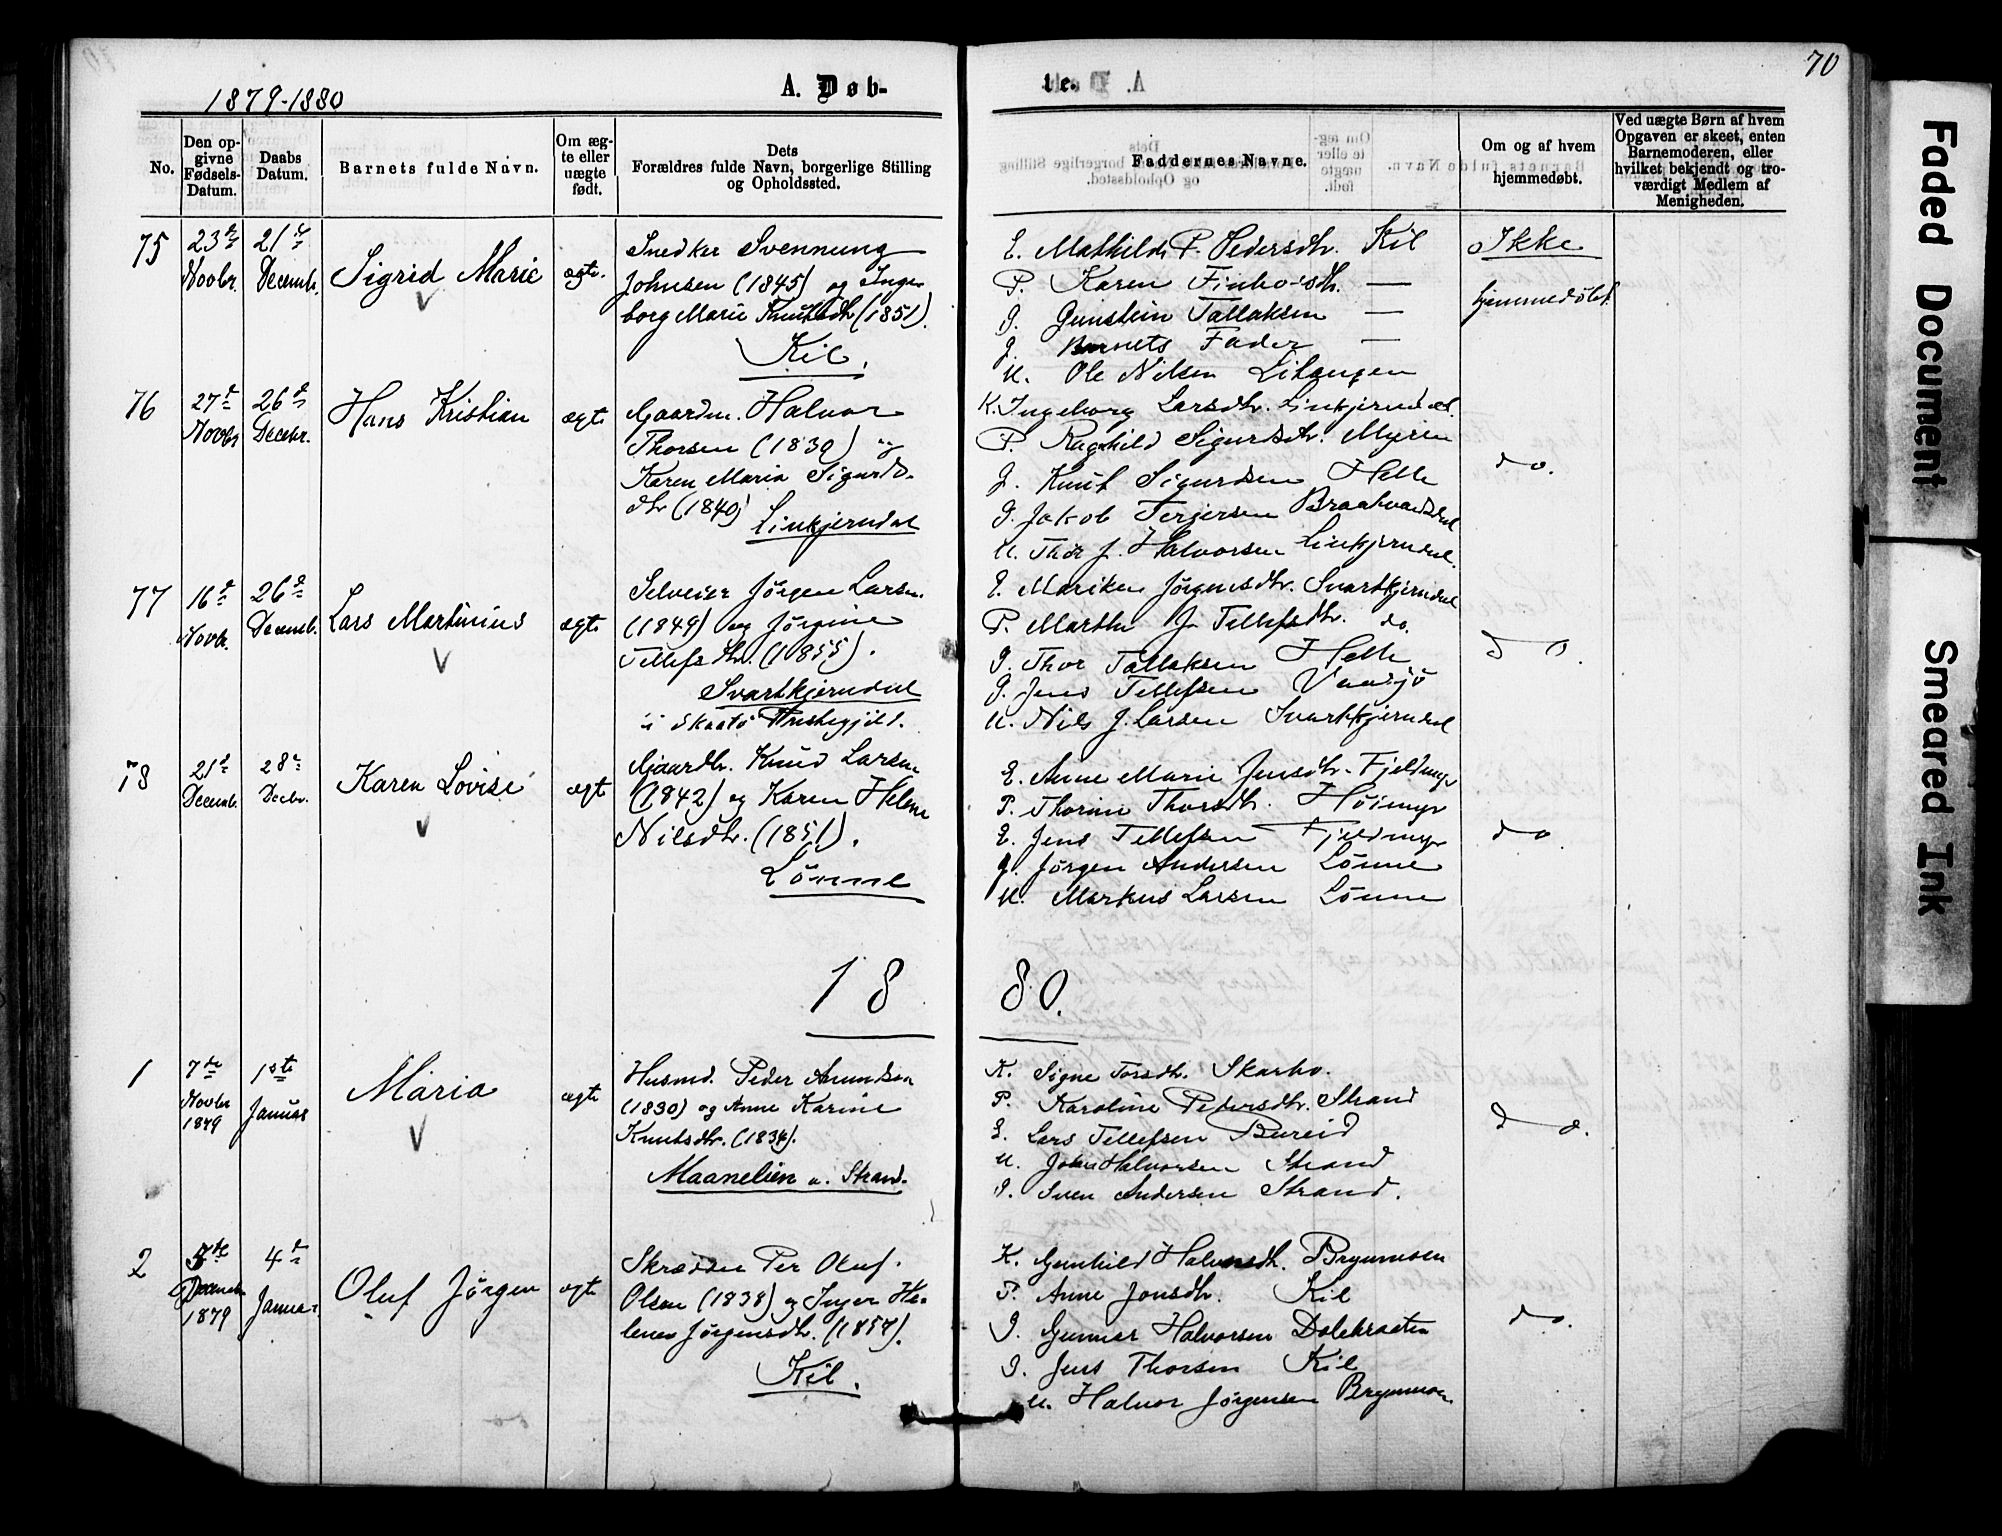 70
1879-1880
A. Døb-
te.
No.
Den op-
givne
Fødsels-
Datum.
Daabs
Datum.
Barnets fulde Navn.
Om æg-
te eller
uægte
født.
Dets
Forældres fulde Navn, borgerlige Stilling
og Opholdssted.
Faddernes Navne.
Om og af hvem
hjemmedøbt.
Ved uægte Børn af hvem
Opgaven er skeet, enten
Barnemoderen, eller
hvilket bekjendt og tro-
værdigt Medlem af
Menigheden.
75
23de
Novbr.
21de
Decemb.
Sigrid Marie
ægte.
Snedker Svennung
Johnsen (1845) og Inge-
borg Marie Knutsdtr (1851).
Kil.
E. Mathilde P. Pedersdtr. Kil
P. Karen —
G. Gunstein Tallaksen —
J. Barnets Fader —
U. Ole Nilsen
Ikke
hjemmedøbt.
76
27de
Novbr
26de
Decbr.
Hans Kristian
ægte
Gaardm. Halvor
Thorsen (1839) og
Karen Maria Sigurds-
dtr (1840)
Linkjerndal
K. Ingeborg Larsdtr. Linkjerndal.
P. Ragnhild Sigurdsdtr. Myren
J. Knut Sigurdsen Helle
G. Jakob Terjersen
U. Thor J. Halvorsen Linkjerndal.
do.
77
16de
Novbr.
26de
Decemb.
Lars Martinius
ægte
Selveier Jørgen Larsen.
(1849) og Jørgine
Tellefsdtr. (1855).
Svartkjerndal
i Skaatø Præstegjeld.
E. Mariken Jørgensdtr. Svartkjerndal
P. Marthe J. Tellefsdtr. do.
G. Thor Tallaksen Helle
G. Jens Tellefsen Vaasjø
U. Nils J. Larsen Svartkjerndal
do.
78
21de
Decemb.
28de
Decbr.
Karen Lovise
ægte
Gaardbr. Knud Larsen
(1842) og Karen Helene
Nilsdtr. (1851).
Lønne
E. Anne Marie Jensdtr. Fjeldmyr
P. Thorine Thorsdtr. Høimyr
E. Jens Tellefsen Fjeldmyr
G. Jørgen Andersen Lønne
U. Markus Larsen Lønne
do.
18 80.
1
7de
Novbr
1879
1ste
Januar
Maria
ægte
Husmd. Peder Amundsen
(1830) og Anne Karine
Knutsdtr. (1834).
Maanelien u. Strand.
K. Signe Torsdtr. Skarbo.
P. Karoline Petersdtr. Strand
E. Lars Tellefsen Bureid
U. John Halvorsen Strand
G. Sven Andersen Strand.
do.
2
5de
Decemb.
1879
4de
Januar
Oluf Jørgen
ægte
Skrædder Per Oluf.
Olsen (1838) og Inger He-
lene Jørgensdtr. (1857).
Kil.
K. Gunhild Halvorsdtr. Brynemoen
P. Anne Jonsdtr. Kil
G. Gunnar Halvorsen Dalebraaten
G. Jens Thorsen Kil
U. Halvor Jørgensen Brynemoen.
do.
Faded Document
Smeared Ink